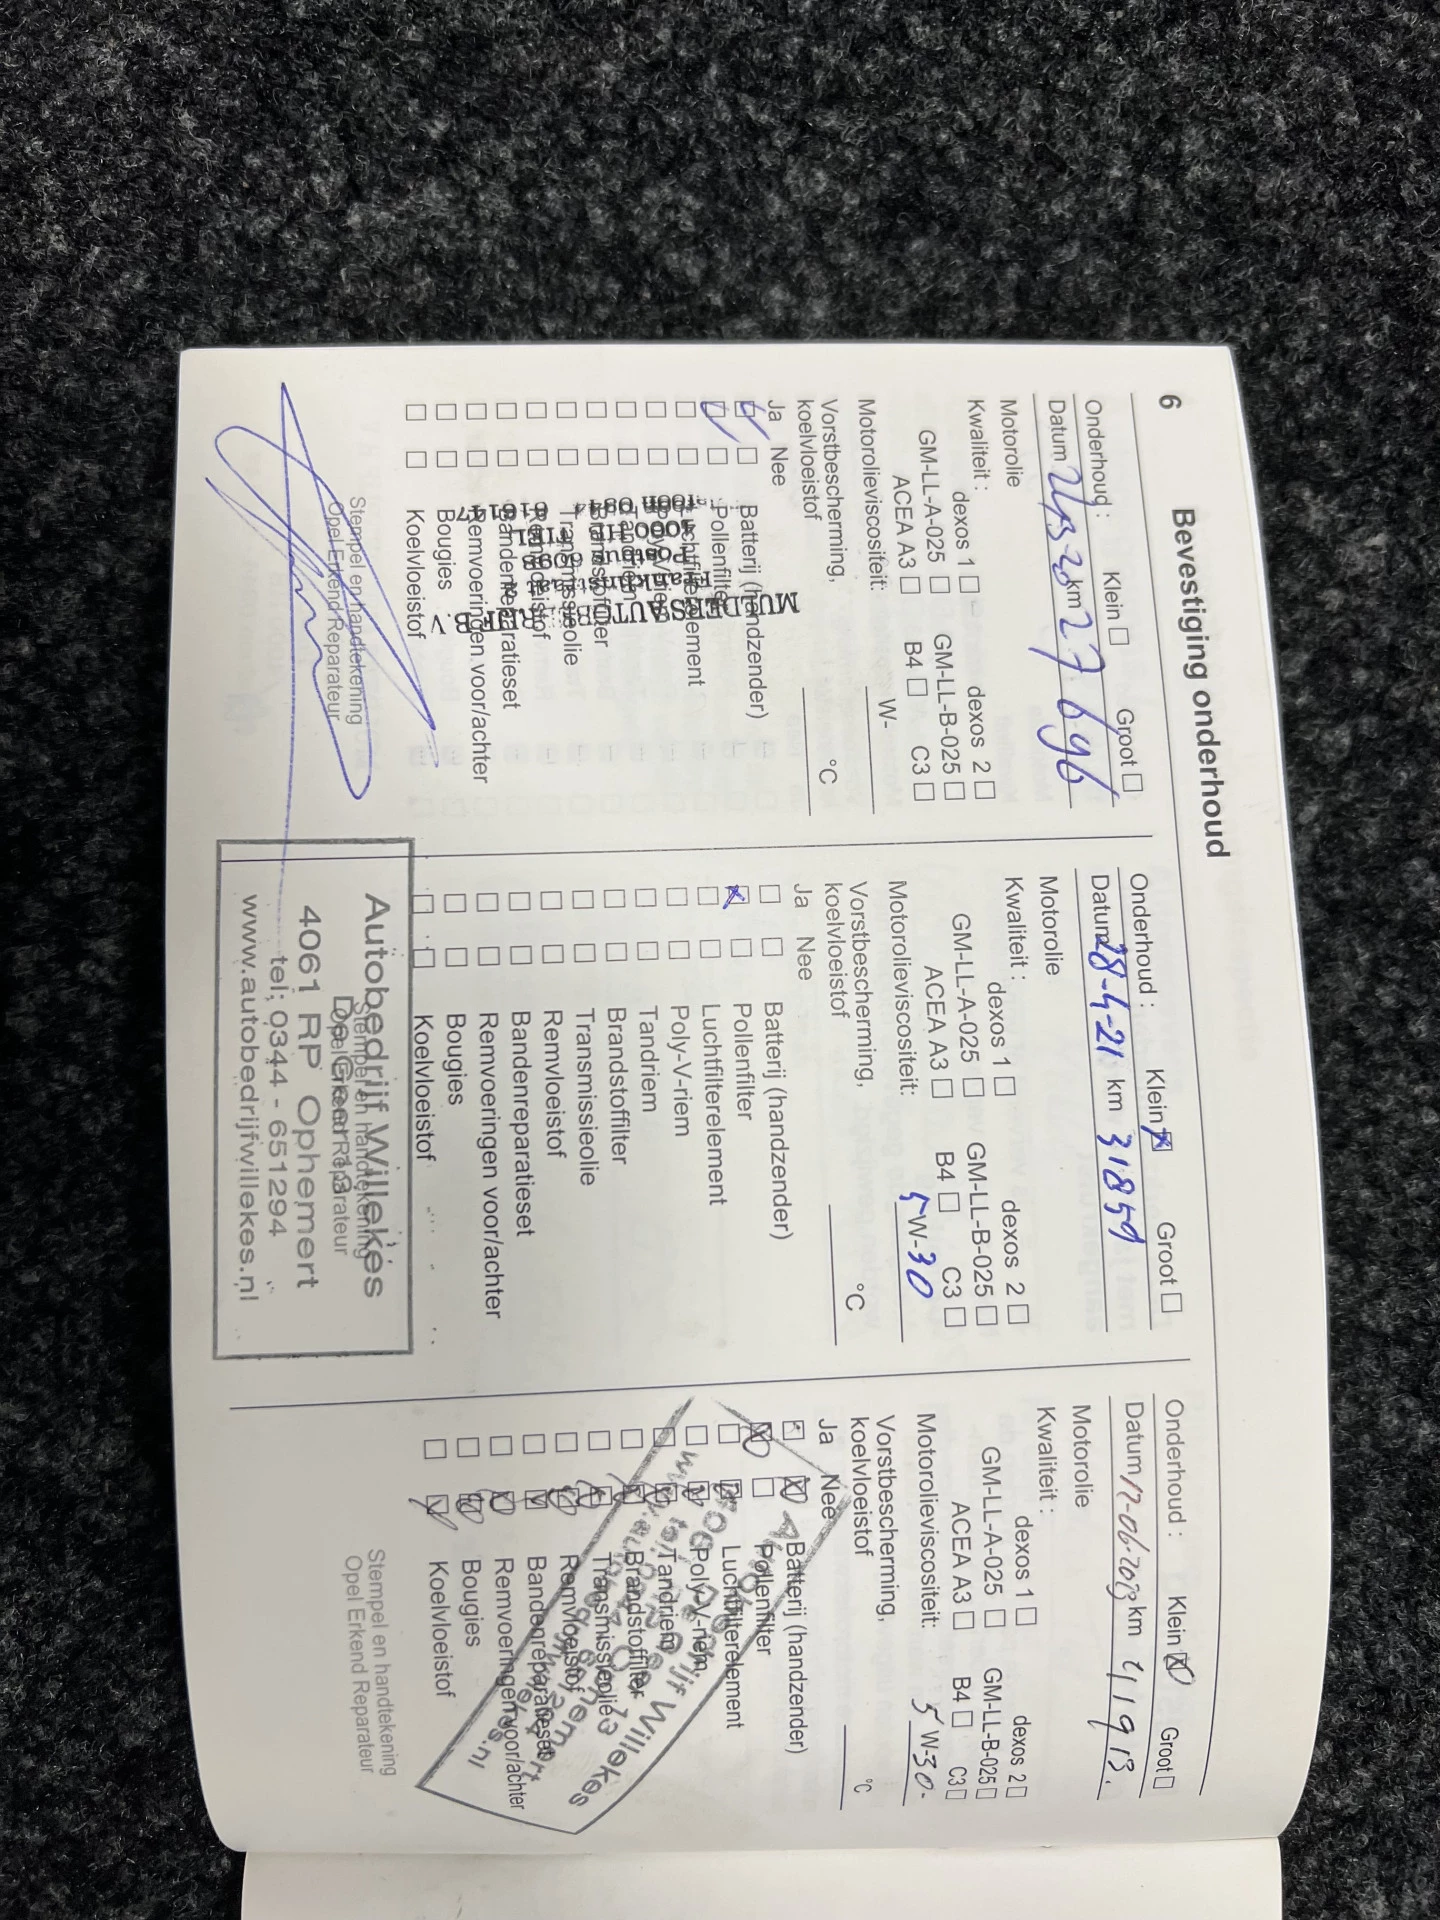 6
Bevestiging onderhoud
Onderhoud : Klein Groot
Datum km 27696
Motorolie
Kwaliteit : dexos 1 dexos 2
GM-LL-A-025 GM-LL-B-025
ACEA A3 B4 C3
Motorolieviscositeit: W-
Vorstbescherming,
koelvloeistof °C
Ja Nee
Batterij (handzender)
Pollenfilter
Luchtfilterelement
Transmissieolie
Remvloeistof
Bandenreparatieset
Remvoeringen voor/achter
Bougies
Koelvloeistof
MULDERS AUTOBEDRIJF B V
Postbus
Stempel en handtekening
Opel Erkend Reparateur
Onderhoud : Klein Groot
Datum 28-4-21 km 31859
Motorolie
Kwaliteit : dexos 1 dexos 2
GM-LL-A-025 GM-LL-B-025
ACEA A3 B4 C3
Motorolieviscositeit: 5W-30
Vorstbescherming,
koelvloeistof °C
Ja Nee
Batterij (handzender)
Pollenfilter
Luchtfilterelement
Poly-V-riem
Tandriem
Brandstoffilter
Transmissieolie
Remvloeistof
Bandenreparatieset
Remvoeringen voor/achter
Bougies
Koelvloeistof
Stempel en handtekening
Opel Erkend Reparateur
Autobedrijf Willekes
De Geer 13
4061 RP Ophemert
tel: 0344 - 651294
www.autobedrijfwillekes.nl
Onderhoud : Klein Groot
Datum 17-06-2023 km 41913.
Motorolie
Kwaliteit : dexos 1 dexos 2
GM-LL-A-025 GM-LL-B-025
ACEA A3 B4 C3
Motorolieviscositeit: 5W-30-
Vorstbescherming,
koelvloeistof °C
Ja Nee
Batterij (handzender)
Pollenfilter
Luchtfilterelement
Poly-V-riem
Tandriem
Brandstoffilter
Transmissieolie
Remvloeistof
Bandenreparatieset
Remvoeringen voor/achter
Bougies
Koelvloeistof
Willekes
Stempel en handtekening
Opel Erkend Reparateur